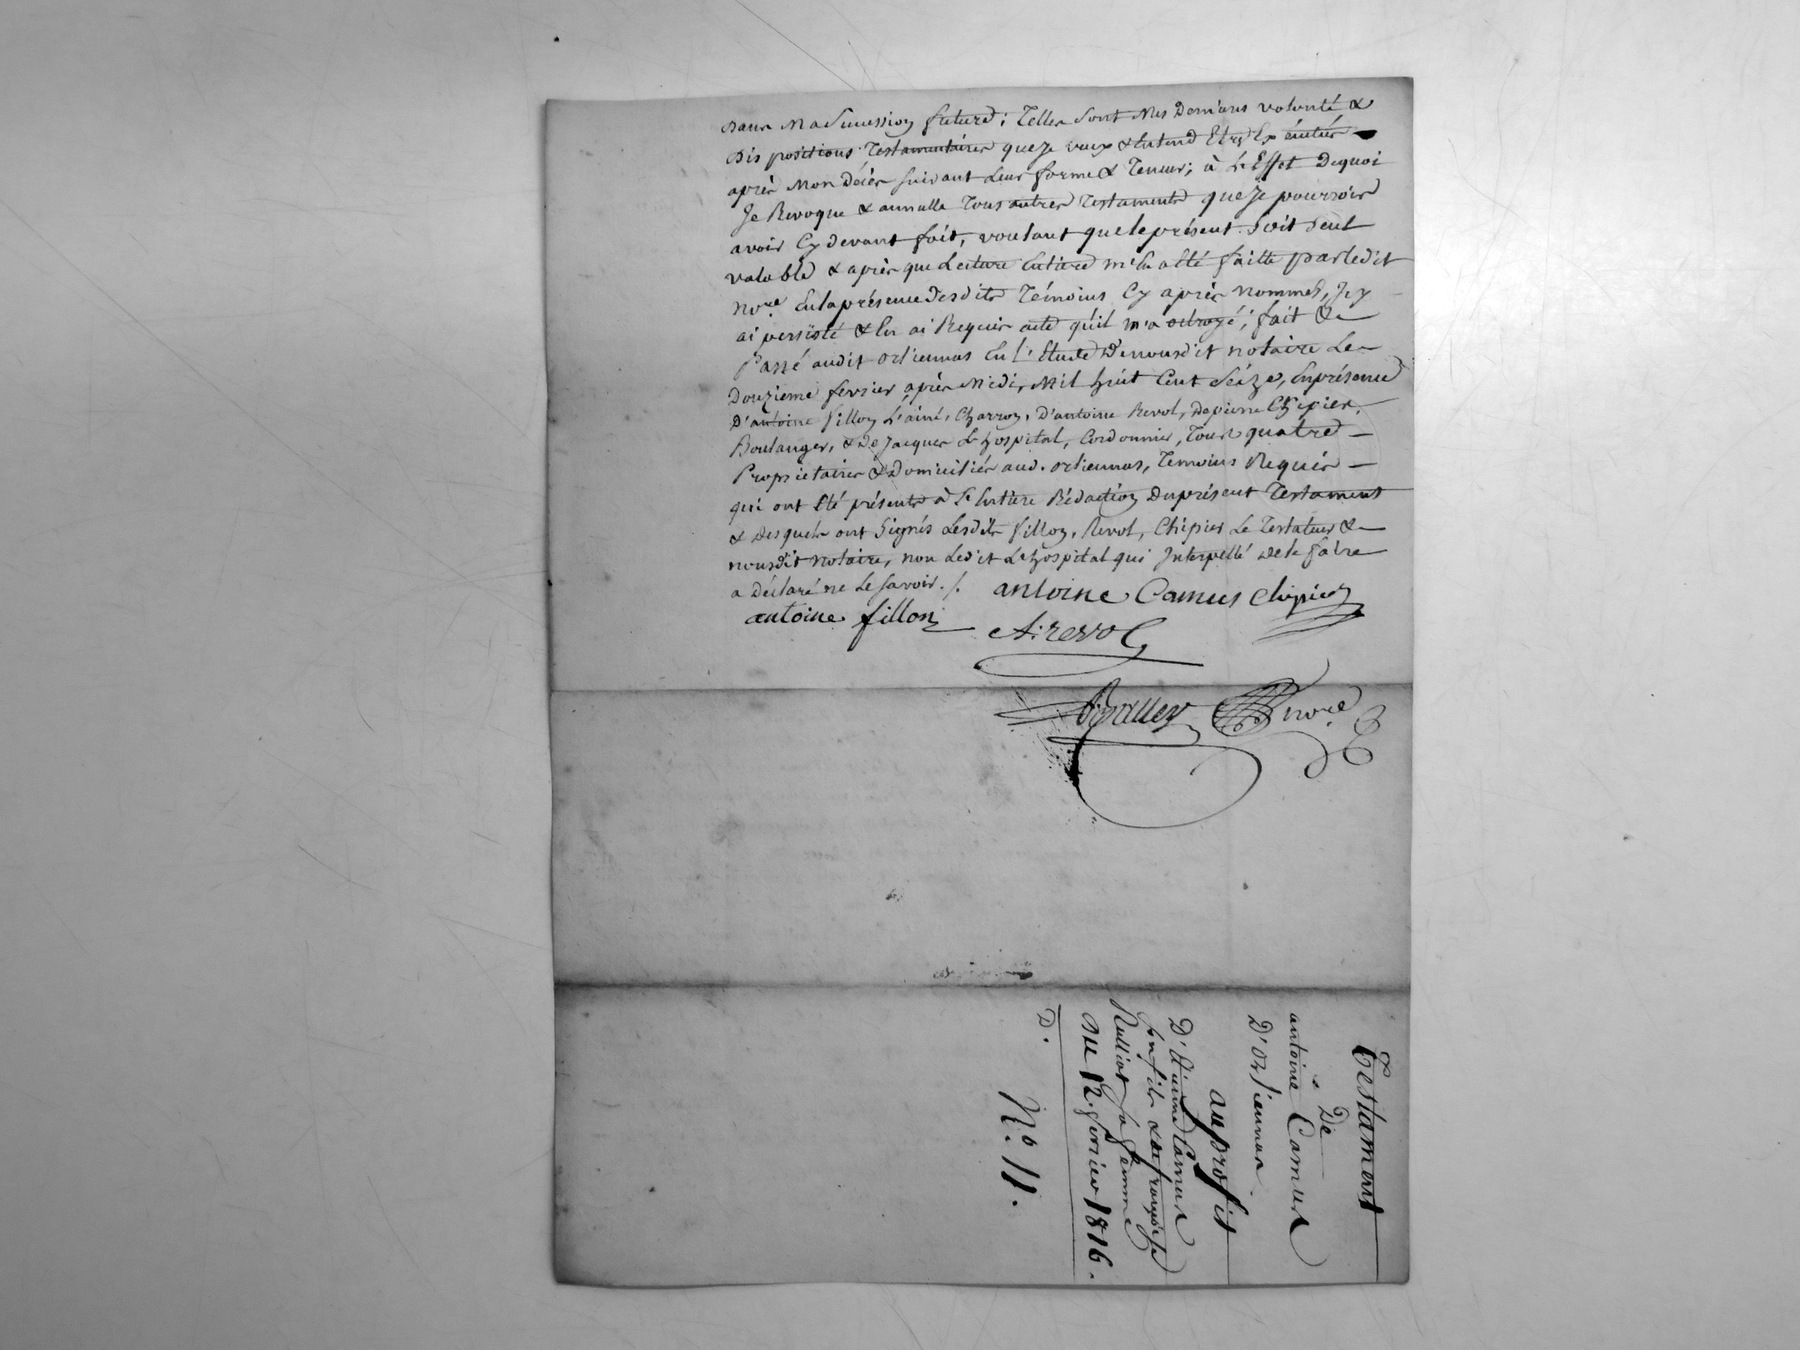 dans Ma Succession future; Telles Sont Mes Derniers volonté &
Dispositions Testamentaires que Je veux & Entend Etre Exécutées
après Mon Décès Suivant Leur forme & Teneur; à L'Effet Dequoi
Je Revoque & annulle Tous autres Testaments que Je pourrois
avoir Cy devant fait, voulant que le présent Soit Seul
valable & après que Lecture Entiere m'En a Eté faitte par ledit
No.re En la présence desdits Témoins Cy après nommés, J'y
ai persisté & En ai Requis acte qu'il m'a octroyé; fait &
Passé audit Orliennas En L'Etude De nousdit notaire Le
Douzieme fevrier après Midi, Mil huit Cent Seize, En présence
D'antoine fillon L'ainé, Charron, D'antoine Revol, De pierre Chipier,
Boulanger, & De Jacques L'hospital, Cordonnier, Tous quatre
Proprietaires & Domiciliés aud. orliennas, Temoins Requis
qui ont Eté présents à L'Entiere Rédaction Du présent Testament
& Desquels ont Signés Lesdits fillon, Revol, Chipier Le Testateur &
nousdit notaire, non Ledit L'hospital qui Interpellé De le faire
a Déclaré ne Le Savoir. /.
antoine Camus Chipier
antoine fillon
A: revol
no.re
Testament
De
antoine Camus
D'Orliennas.
au profit
D'Etienne Camus
Son fils & de françoise
Sa femme
Du 12 fevrier 1816.
D.
N.o 11.